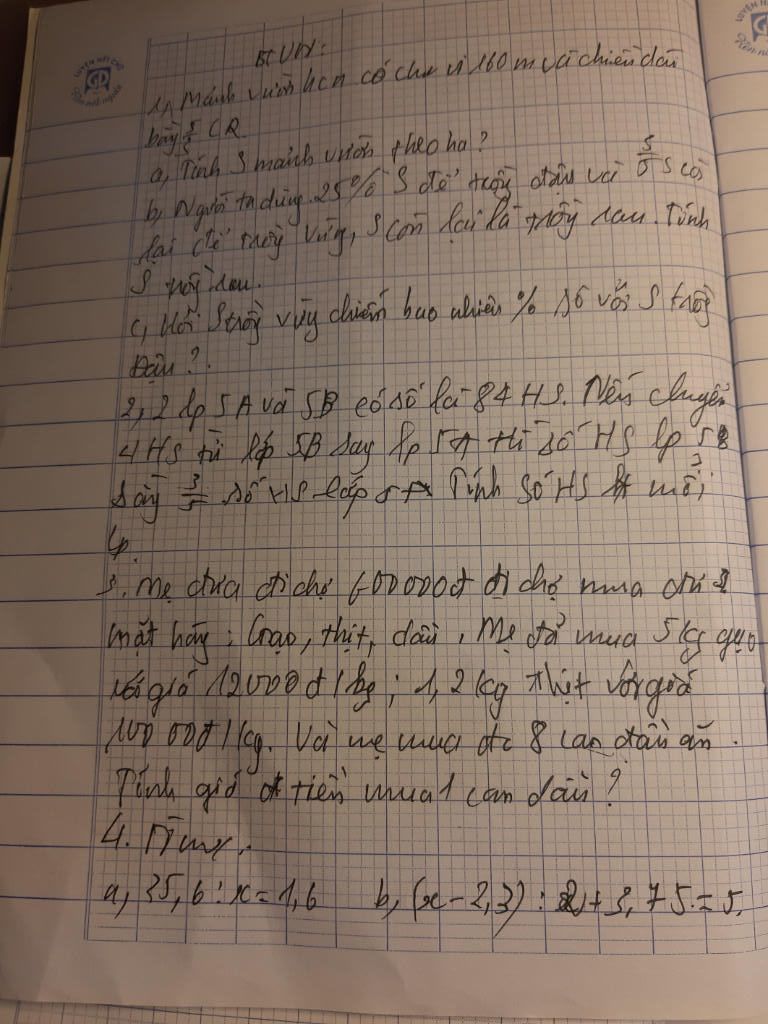 LUYỆN NÉT CHỮ
Rèn nết người
BTVN:
1, Mảnh vườn hcn có chu vi 160 m và chiều dài
bằng CR
a, Tính S mảnh vườn theo ha?
b, Người ta dùng 25% S để trồng đậu và S còn
lại để trồng vừng, S còn lại là trồng rau. Tính
S trồng rau.
c, Hỏi S trồng vừng chiếm bao nhiêu % so với S trồng
đậu?
2, 2 lp 5A và 5B có số là 84 HS. Nếu chuyển
4 HS từ lớp 5B sag lp 5A thì số HS lp 5B
bằng 3/5 số HS lớp 5A Tính số HS mỗi
lp.
3. Mẹ đưa đi chợ 600000đ đi chợ mua đủ 3
mặt hàng: Gạo, thịt, dầu. Mẹ đã mua 5kg gạo
với giá 12000 đ/kg; 1,2kg thịt với giá
100 00đ/kg. Và mẹ mua đc 8 can dầu ăn.
Tính giá tiền mua 1 can dầu?
4. Tìm x.
a, 35,6 : x = 1,6 b, (x - 2,3) : 2 + 3,75 = 5.